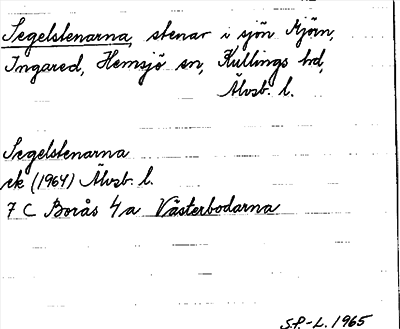 Segelstenarna, stenar i sjön Mjörn,
Ingared, Hemsjö sn, Kullings hd,
Älvsb. l.
Segelstenarna
ek (1964) Älvsb. l.
7 C Borås 4 a Västerbodarna
S.P.-L. 1965